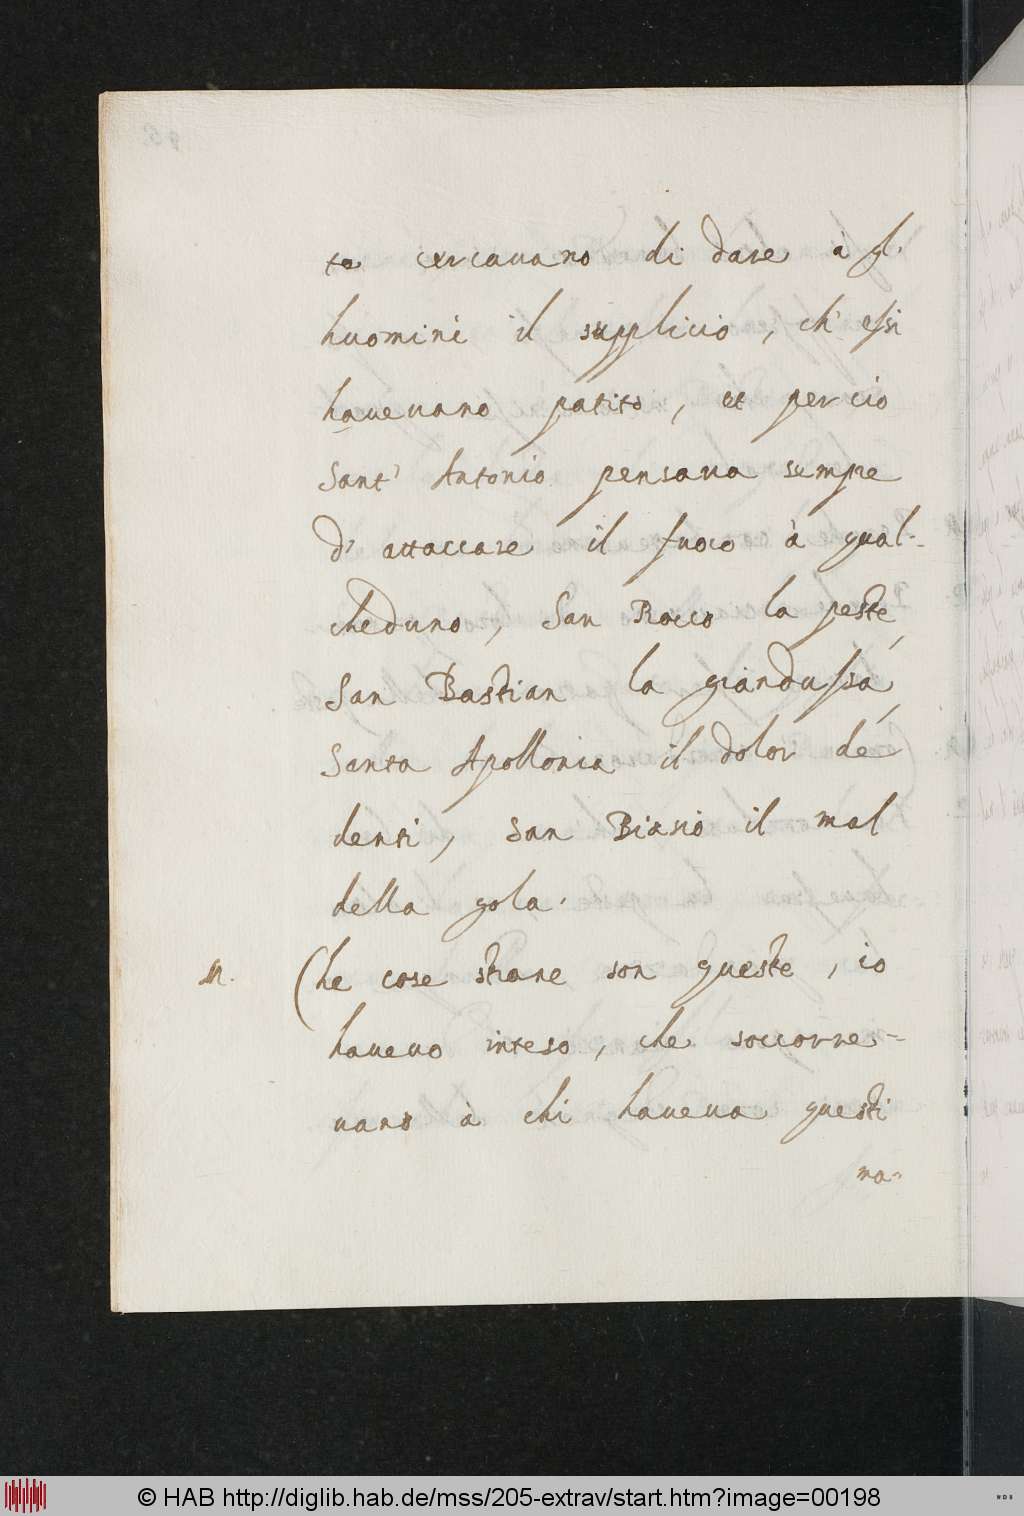 te cercauano di dare à gl.
huomini il supplicio, ch' essi
haueuano patito, et percio
Sant' Antonio pensaua sempre
d' attaccare il fuoco à qual-
cheduno, San Rocco la peste,
San Bastian la giandussa,
Santa Apollonia il dolor de
denti, San Biasio il mal
della gola.
M. Che cose strane son queste, io
haueuo inteso, che soccorre-
uano à chi haueua questi
ma-
© HAB http://diglib.hab.de/mss/205-extrav/start.htm?image=00198